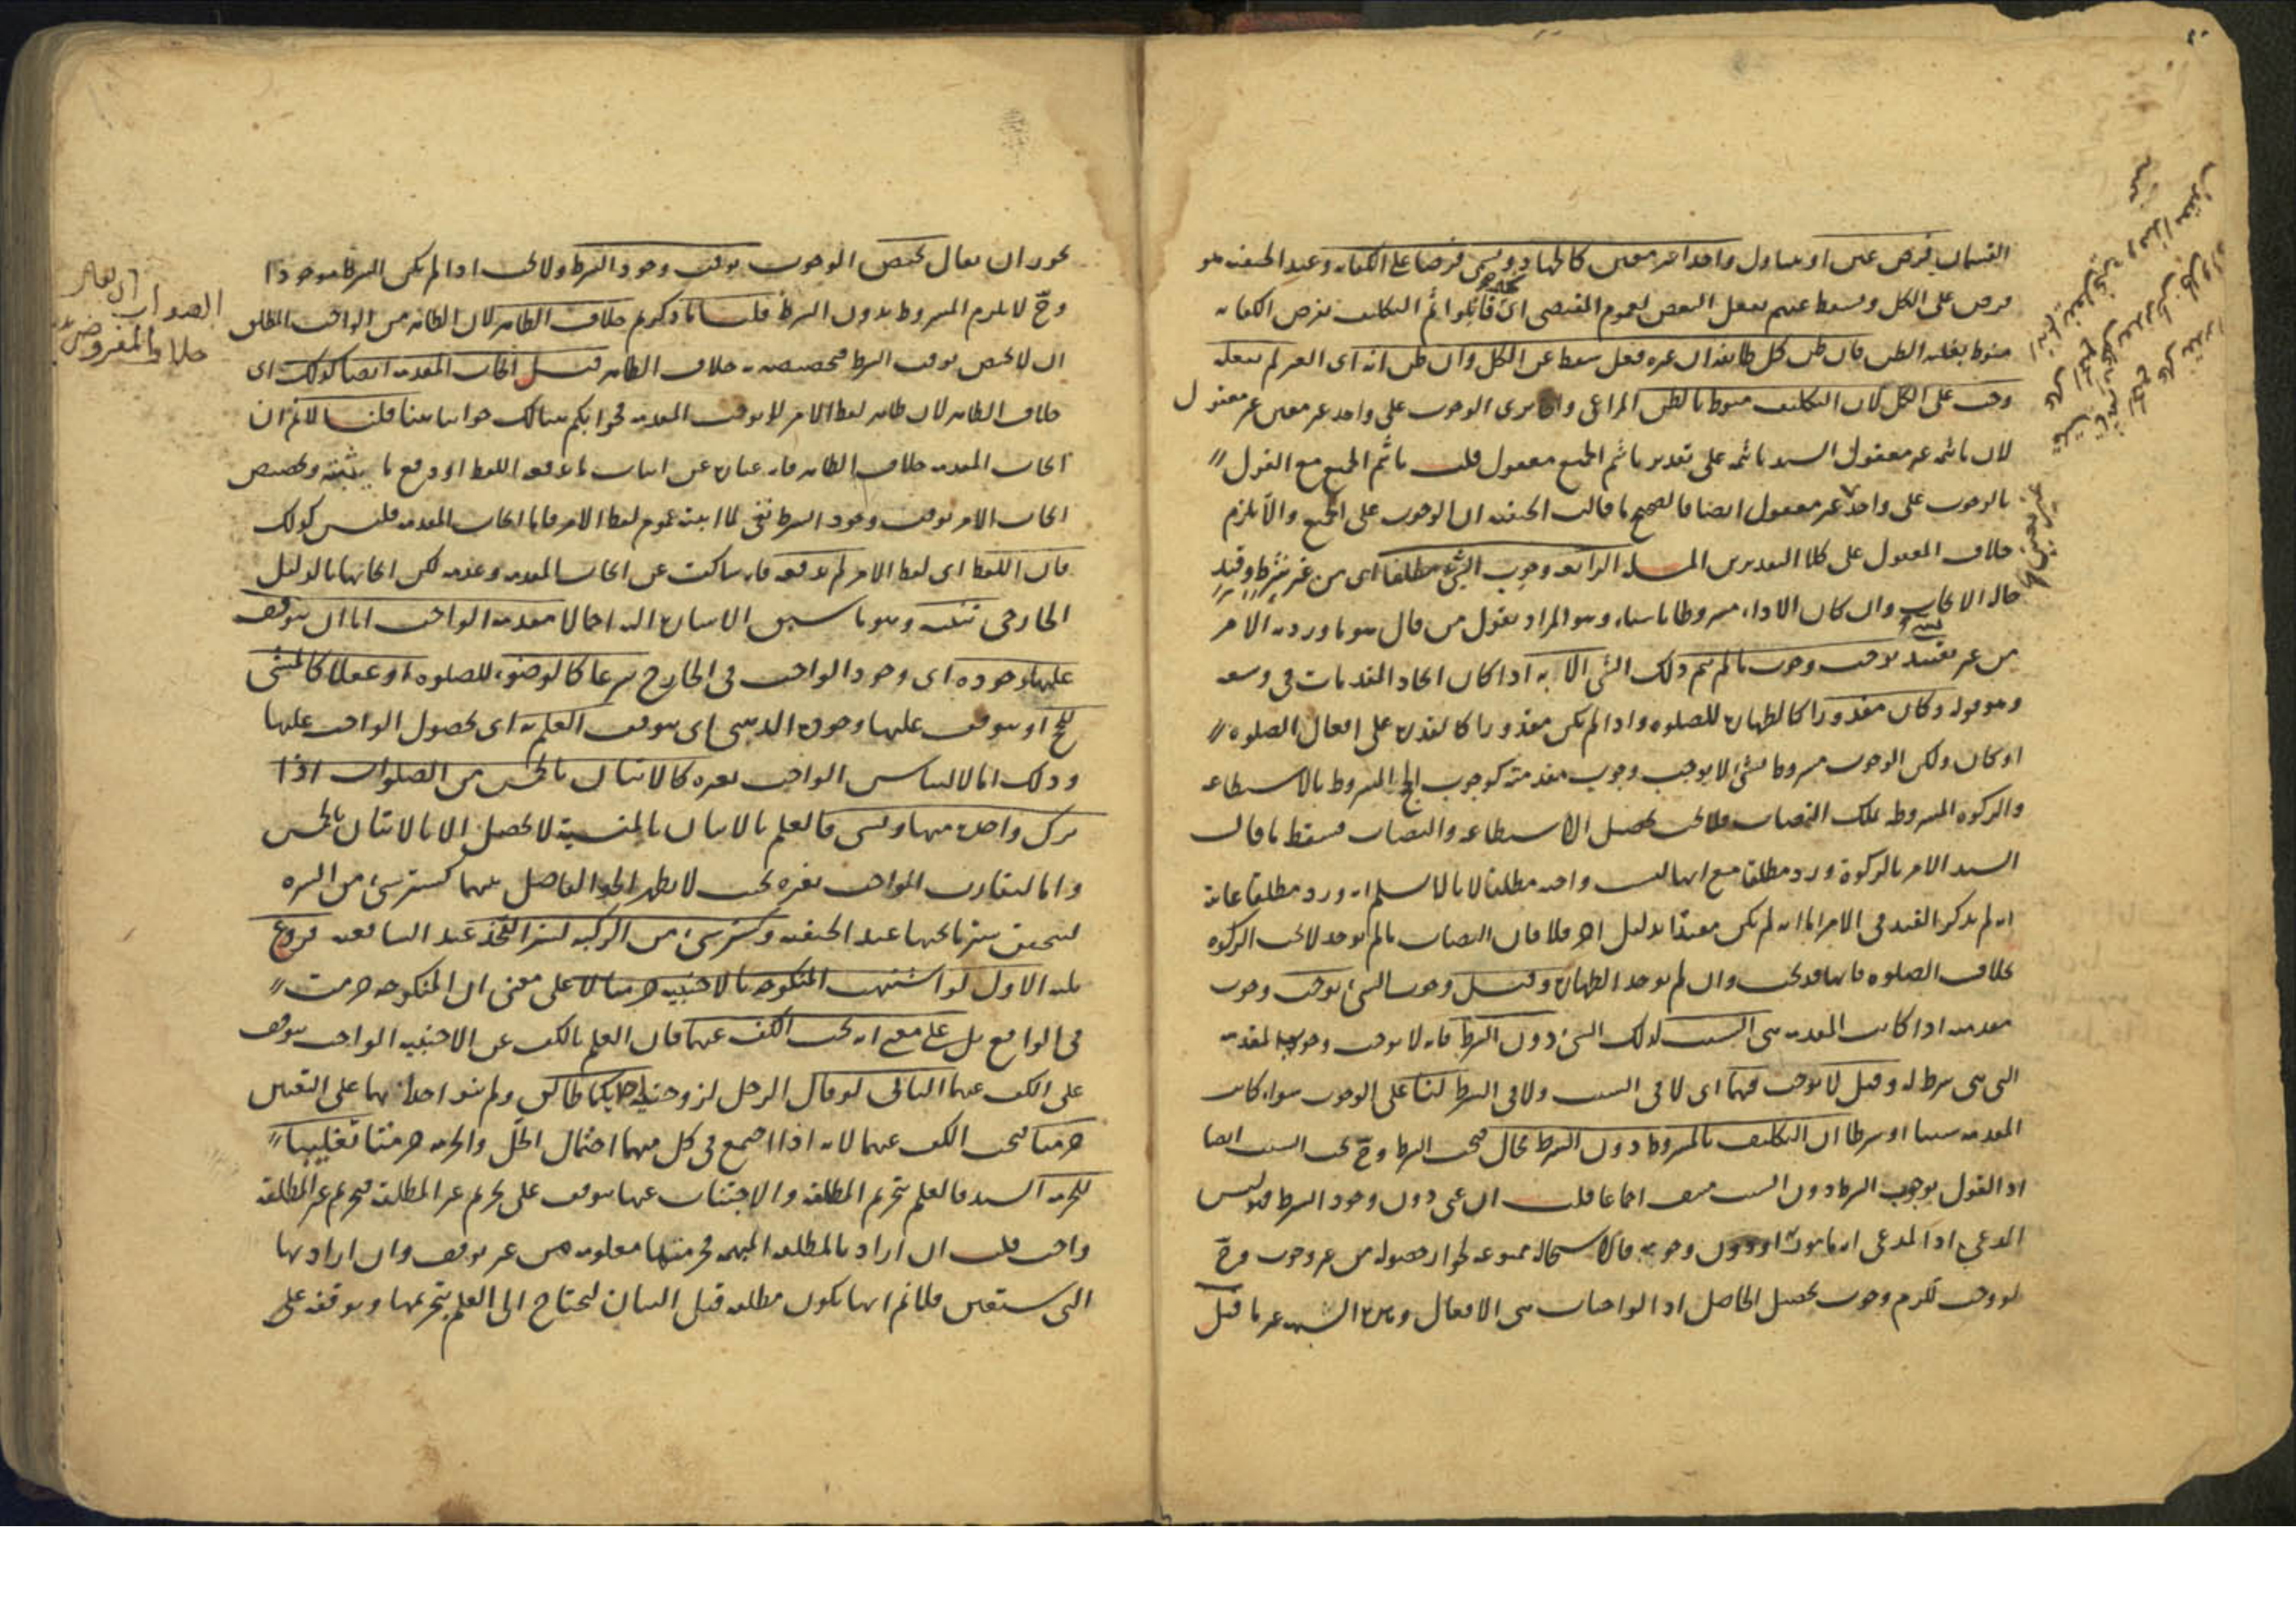 القسمان فرض عين او يتناول واحدا غير معين كالجهاد ويسمى فرضا على الكفاية وعند الحنفية هو
فرض على الكل ويسقط عنهم بفعل البعض لعموم المقتضى اي قاتلوا ثم التكليف بفرض الكفاية
منوط بغلبة الظن فان ظن كل طائفة ان غيره فعل سقط عن الكل وان ظن انه اى الغير لم يفعله
وجب على الكل لان التكليف منوط بالظن المراعى وان يرى الوجوب على واحد غير معين غير معقول
لان تأثيمه غير معقول السيد تأثيمه على تقدير تأثيم الجميع معقول قلت تأثيم الجميع مع القول
بالوجوب على واحد غير معقول ايضا فالصحيح ما قالت الحنفية ان الوجوب على الجميع والا يلزم
خلاف المعقول على كلا التقديرين المسئلة الرابعة وجوب الشئ مطلقا اى من غير شرط وقيد
حال الايجاب وان كان الاداء مشروطا باشياء وهو المراد بقول من قال هو ما ورد به الامر
من غير تقييد يوجب وجوب ما لم يتم ذلك الشئ الا به اذا كان ايجاد المقدمات في وسعه
وهو قوله وكان مقدورا كالطهارة للصلوة واذا لم يكن مقدورا كالقدرة على افعال الصلوة
او كان ولكن الوجوب مشروط بشئ لا يوجب وجوب مقدمته كوجوب الحج المشروط بالاستطاعة
والزكوة المشروطة بملك النصاب فلا يجب تحصيل الاستطاعة والنصاب فسقط ما قال
السيد الامر بالزكوة ورد مطلقا مع انها ليست واجبة مطلقا لانا لا نسلم انه ورد مطلقا غايته
انه لم يذكر القيد في الامر اما انه لم يكن مقيدا بدليل اخر فلا فان النصاب ما لم يوجد لا يجب الزكوة
بخلاف الصلوة فانها قد يجب وان لم يوجد الطهارة وقيل وجوب الشئ يوجب وجوب
مقدمته اذا كانت المقدمة هى السبب لذلك الشئ دون الشرط فانه لا يوجب وجوبه لمقدمته
التى هى شرط له وقيل لا يوجب فيهما اى لا في السبب ولا في الشرط لنا على الوجوب سواء كانت
المقدمة سببا او شرطا ان التكليف بالمشروط دون الشرط محال فيجب الشرط وح يجب السبب ايضا
اذ القول بوجوب الشرط دون السبب منتف اجماعا قلت ان عنى دون وجود الشرط فليس
المدعى اذ المدعى او دون وجوبه فالاستحالة ممنوعة لجواز حصوله من غير وجوب وح
لو وجب لزم وجوب تحصيل الحاصل اذ الواجبات هى الافعال غير ما قيل
يجوز ان يقال يختص الوجوب بوقت وجود الشرط ولا يجب اذا لم يكن الشرط موجودا
وح لا يلزم المشروط بدون الشرط قلنا ما ذكرتم خلاف الظاهر لان الظاهر من الواجب المطلق
ان لا يختص بوقت الشرط فتخصيصه به خلاف الظاهر قيل ايجاب المقدمة ايضا كذلك اى
خلاف الظاهر لان ظاهر لفظ الامر لا يوجب المقدمة فجوابكم هنالك جوابنا هنا قلنا لا نم ان
ايجاب المقدمة خلاف الظاهر فانه عبارة عن اثبات ما يدفعه اللفظ او دفع ما يثبته وتخصيص
ايجاب الامر بوقت وجود الشرط نفى لما اثبته عموم لفظ الامر فاما ايجاب المقدمة فليس كذلك
فان اللفظ اى لفظ الامر لم يدفعه فانه ساكت عن ايجاب المقدمة وعدمه لكن ايجابها بالدليل
الخارجى تنبيه وهو ما سبق الاشارة اليه اجمالا مقدمة الواجب اما ان يتوقف
عليها وجوده اى وجود الواجب في الخارج شرعا كالوضوء للصلوة او عقلا كالمشى
للحج او يتوقف العلم به اى بحصول الواجب عليها
وذلك اما لالتباس الواجب بغيره كالاتيان بالخمس من الصلوات اذا
ترك واحدة منها ونسى فالعلم بالاتيان بالمنسية لا يحصل الا بالاتيان بالخمس
واما لتقارب الواجب بغيره بحيث لا يظهر الحد الفاصل بينهما كستر شئ من السرة
ليتحقق ستر ما تحتها عند الحنفية وكستر شئ من الركبة لستر الفخذ عند الشافعية فروع
ثلثة الاول لو اشتبهت المنكوحة بالاجنبية حرمتا لا على معنى ان المنكوحة حرمت
في الواقع بل على معنى انه يجب الكف عنهما فان العلم بالكف عن الاجنبية الواجب يتوقف
على الكف عنهما الثانى لو قال الرجل لزوجتيه احديكما طالق ولم ينو احدا بها على التعيين
حرمتا فيجب الكف عنهما لانه اذا اجتمع في كل منهما احتمال الحل والحرمة حرمتا تغليبا
للحرمة السيد فالعلم بتحريم المطلقة والاجتناب عنها يتوقف على تحريم غير المطلقة فتحريم غير المطلقة
واجب قلت ان اراد بالمطلقة المبهمة فحرمتها معلومة من غير توقف وان اراد بها
التى ستعين فلا نم انها يكون مطلقة قبل البيان ليحتاج الى العلم بتحريمها وتوقفه على
الصواب ان يقال
خلاف المفروض